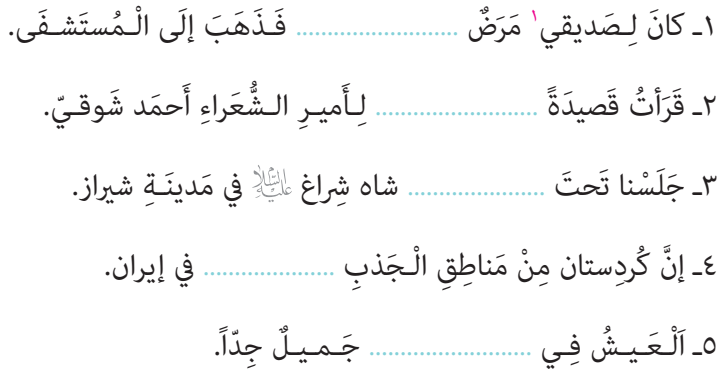 ١ـ كانَ لِـصَديقي١ مَرَضٌ .......................... فَـذَهَبَ إلَى الْـمُستَشـفَى.
٢ـ قَرَأتُ قَصيدَةً .......................... لِـأَميـرِ الـشُّعَراءِ أَحمَد شَوقـيّ.
٣ـ جَلَسْنا تَحتَ ...................... شاه شِراغ عَلَيْهِ السَّلامُ في مَدينَـةِ شيراز.
٤ـ إنَّ كُردِستان مِنْ مَناطِقِ الْـجَذبِ ..................... في إيران.
٥ـ اَلْـعَـيـشُ فِـي .......................... جَـمـيـلٌ جِـدّاً.